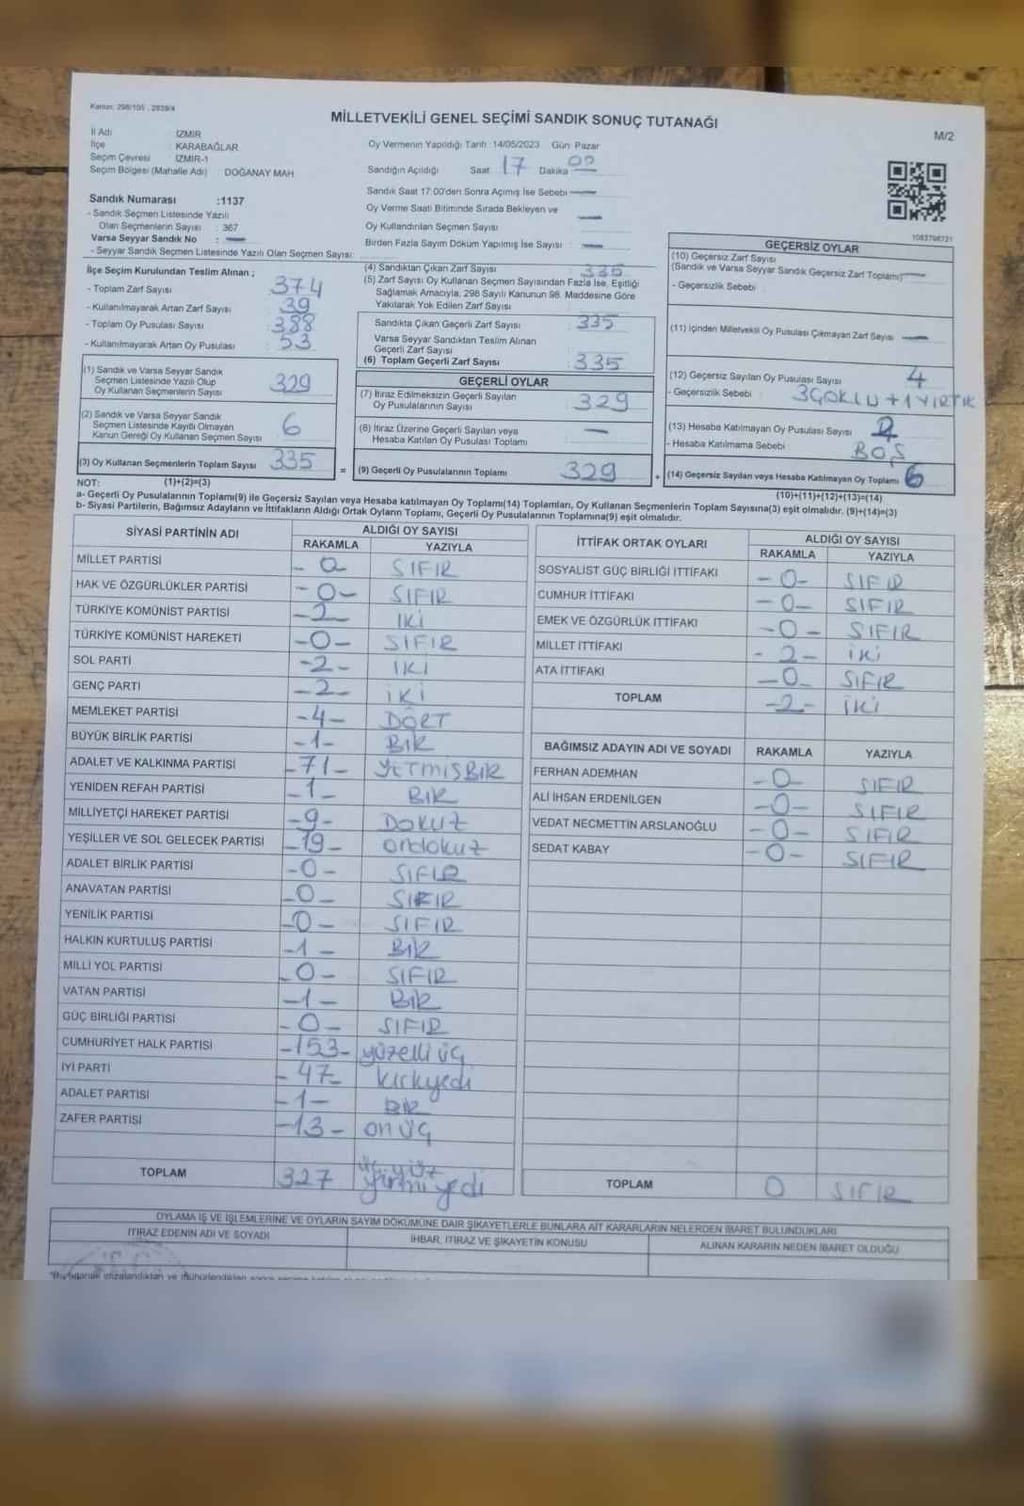 Kanun: 298/105 , 2839/4
MİLLETVEKİLİ GENEL SEÇİMİ SANDIK SONUÇ TUTANAĞI
M/2
İl Adı : İZMİR
İlçe : KARABAĞLAR
Seçim Çevresi : İZMİR-1
Seçim Bölgesi (Mahalle Adı) DOĞANAY MAH
Sandık Numarası :1137
- Sandık Seçmen Listesinde Yazılı
Olan Seçmenlerin Sayısı : 367
Varsa Seyyar Sandık No : —
- Seyyar Sandık Seçmen Listesinde Yazılı Olan Seçmen Sayısı:
Oy Vermenin Yapıldığı Tarih :14/05/2023 Gün Pazar
Sandığın Açıldığı Saat 17 Dakika 00
Sandık Saat 17:00'den Sonra Açımış İse Sebebi —
Oy Verme Saati Bitiminde Sırada Bekleyen ve
Oy Kullandırılan Seçmen Sayısı : —
Birden Fazla Sayım Döküm Yapılmış İse Sayısı : —
1083798721
İlçe Seçim Kurulundan Teslim Alınan ;
- Toplam Zarf Sayısı : 374
- Kullanılmayarak Artan Zarf Sayısı : 39
- Toplam Oy Pusulası Sayısı : 388
- Kullanılmayarak Artan Oy Pusulası : 53
(1) Sandık ve Varsa Seyyar Sandık
Seçmen Listesinde Yazılı Olup
Oy Kullanan Seçmenlerin Sayısı 329
(2) Sandık ve Varsa Seyyar Sandık
Seçmen Listesinde Kayıtlı Olmayan
Kanun Gereği Oy Kullanan Seçmen Sayısı 6
(3) Oy Kullanan Seçmenlerin Toplam Sayısı 335 =
(4) Sandıktan Çıkan Zarf Sayısı 335
(5) Zarf Sayısı Oy Kullanan Seçmen Sayısından Fazla İse, Eşitliği
Sağlamak Amacıyla, 298 Sayılı Kanunun 98. Maddesine Göre
Yakılarak Yok Edilen Zarf Sayısı
Sandıkta Çıkan Geçerli Zarf Sayısı : 335
Varsa Seyyar Sandıktan Teslim Alınan
Geçerli Zarf Sayısı
(6) Toplam Geçerli Zarf Sayısı : 335
GEÇERLİ OYLAR
(7) İtiraz Edilmeksizin Geçerli Sayılan
Oy Pusulalarının Sayısı : 329
(8) İtiraz Üzerine Geçerli Sayılan veya
Hesaba Katılan Oy Pusulası Toplamı —
(9) Geçerli Oy Pusulalarının Toplamı 329 +
GEÇERSİZ OYLAR
(10) Geçersiz Zarf Sayısı
(Sandık ve Varsa Seyyar Sandık Geçersiz Zarf Toplamı) —
- Geçersizlik Sebebi :
(11) İçinden Milletvekili Oy Pusulası Çıkmayan Zarf Sayısı —
(12) Geçersiz Sayılan Oy Pusulası Sayısı 4
- Geçersizlik Sebebi : 3 ÇOKLU + 1 YIRTIK
(13) Hesaba Katılmayan Oy Pusulası Sayısı 2
- Hesaba Katılmama Sebebi : BOŞ
(14) Geçersiz Sayılan veya Hesaba Katılmayan Oy Toplamı 6
NOT: (1)+(2)=(3)
(10)+(11)+(12)+(13)=(14)
a- Geçerli Oy Pusulalarının Toplamı(9) ile Geçersiz Sayılan veya Hesaba katılmayan Oy Toplamı(14) Toplamları, Oy Kullanan Seçmenlerin Toplam Sayısına(3) eşit olmalıdır. (9)+(14)=(3)
b- Siyasi Partilerin, Bağımsız Adayların ve İttifakların Aldığı Ortak Oyların Toplamı, Geçerli Oy Pusulalarının Toplamına(9) eşit olmalıdır.
SİYASİ PARTİNİN ADI ALDIĞI OY SAYISI
RAKAMLA YAZIYLA
MİLLET PARTİSİ - 0 SIFIR
HAK VE ÖZGÜRLÜKLER PARTİSİ -0- SIFIR
TÜRKİYE KOMÜNİST PARTİSİ -2- İKİ
TÜRKİYE KOMÜNİST HAREKETİ -0- SIFIR
SOL PARTİ -2- İKİ
GENÇ PARTİ -2- İKİ
MEMLEKET PARTİSİ -4- DÖRT
BÜYÜK BİRLİK PARTİSİ -1- BİR
ADALET VE KALKINMA PARTİSİ -71- YETMİŞBİR
YENİDEN REFAH PARTİSİ -1- BİR
MİLLİYETÇİ HAREKET PARTİSİ -9- DOKUZ
YEŞİLLER VE SOL GELECEK PARTİSİ -19- ondokuz
ADALET BİRLİK PARTİSİ -0- SIFIR
ANAVATAN PARTİSİ -0- SIFIR
YENİLİK PARTİSİ -0- SIFIR
HALKIN KURTULUŞ PARTİSİ -1- BİR
MİLLİ YOL PARTİSİ -0- SIFIR
VATAN PARTİSİ -1- BİR
GÜÇ BİRLİĞİ PARTİSİ -0- SIFIR
CUMHURİYET HALK PARTİSİ -153- yüzelli üç
İYİ PARTİ -47- kırkyedi
ADALET PARTİSİ -1- BİR
ZAFER PARTİSİ -13- onüç
TOPLAM 327 üçyüz yirmi yedi
İTTİFAK ORTAK OYLARI ALDIĞI OY SAYISI
RAKAMLA YAZIYLA
SOSYALİST GÜÇ BİRLİĞİ İTTİFAKI -0- SIFIR
CUMHUR İTTİFAKI -0- SIFIR
EMEK VE ÖZGÜRLÜK İTTİFAKI -0- SIFIR
MİLLET İTTİFAKI -2- iki
ATA İTTİFAKI -0- SIFIR
TOPLAM -2- İKİ
BAĞIMSIZ ADAYIN ADI VE SOYADI RAKAMLA YAZIYLA
FERHAN ADEMHAN -0- SIFIR
ALİ İHSAN ERDENİLGEN -0- SIFIR
VEDAT NECMETTİN ARSLANOĞLU -0- SIFIR
SEDAT KABAY -0- SIFIR
TOPLAM 0 SIFIR
OYLAMA İŞ VE İŞLEMLERİNE VE OYLARIN SAYIM DÖKÜMÜNE DAİR ŞİKAYETLERLE BUNLARA AİT KARARLARIN NELERDEN İBARET BULUNDUKLARI
İTİRAZ EDENİN ADI VE SOYADI İHBAR, İTİRAZ VE ŞİKAYETİN KONUSU ALINAN KARARIN NEDEN İBARET OLDUĞU